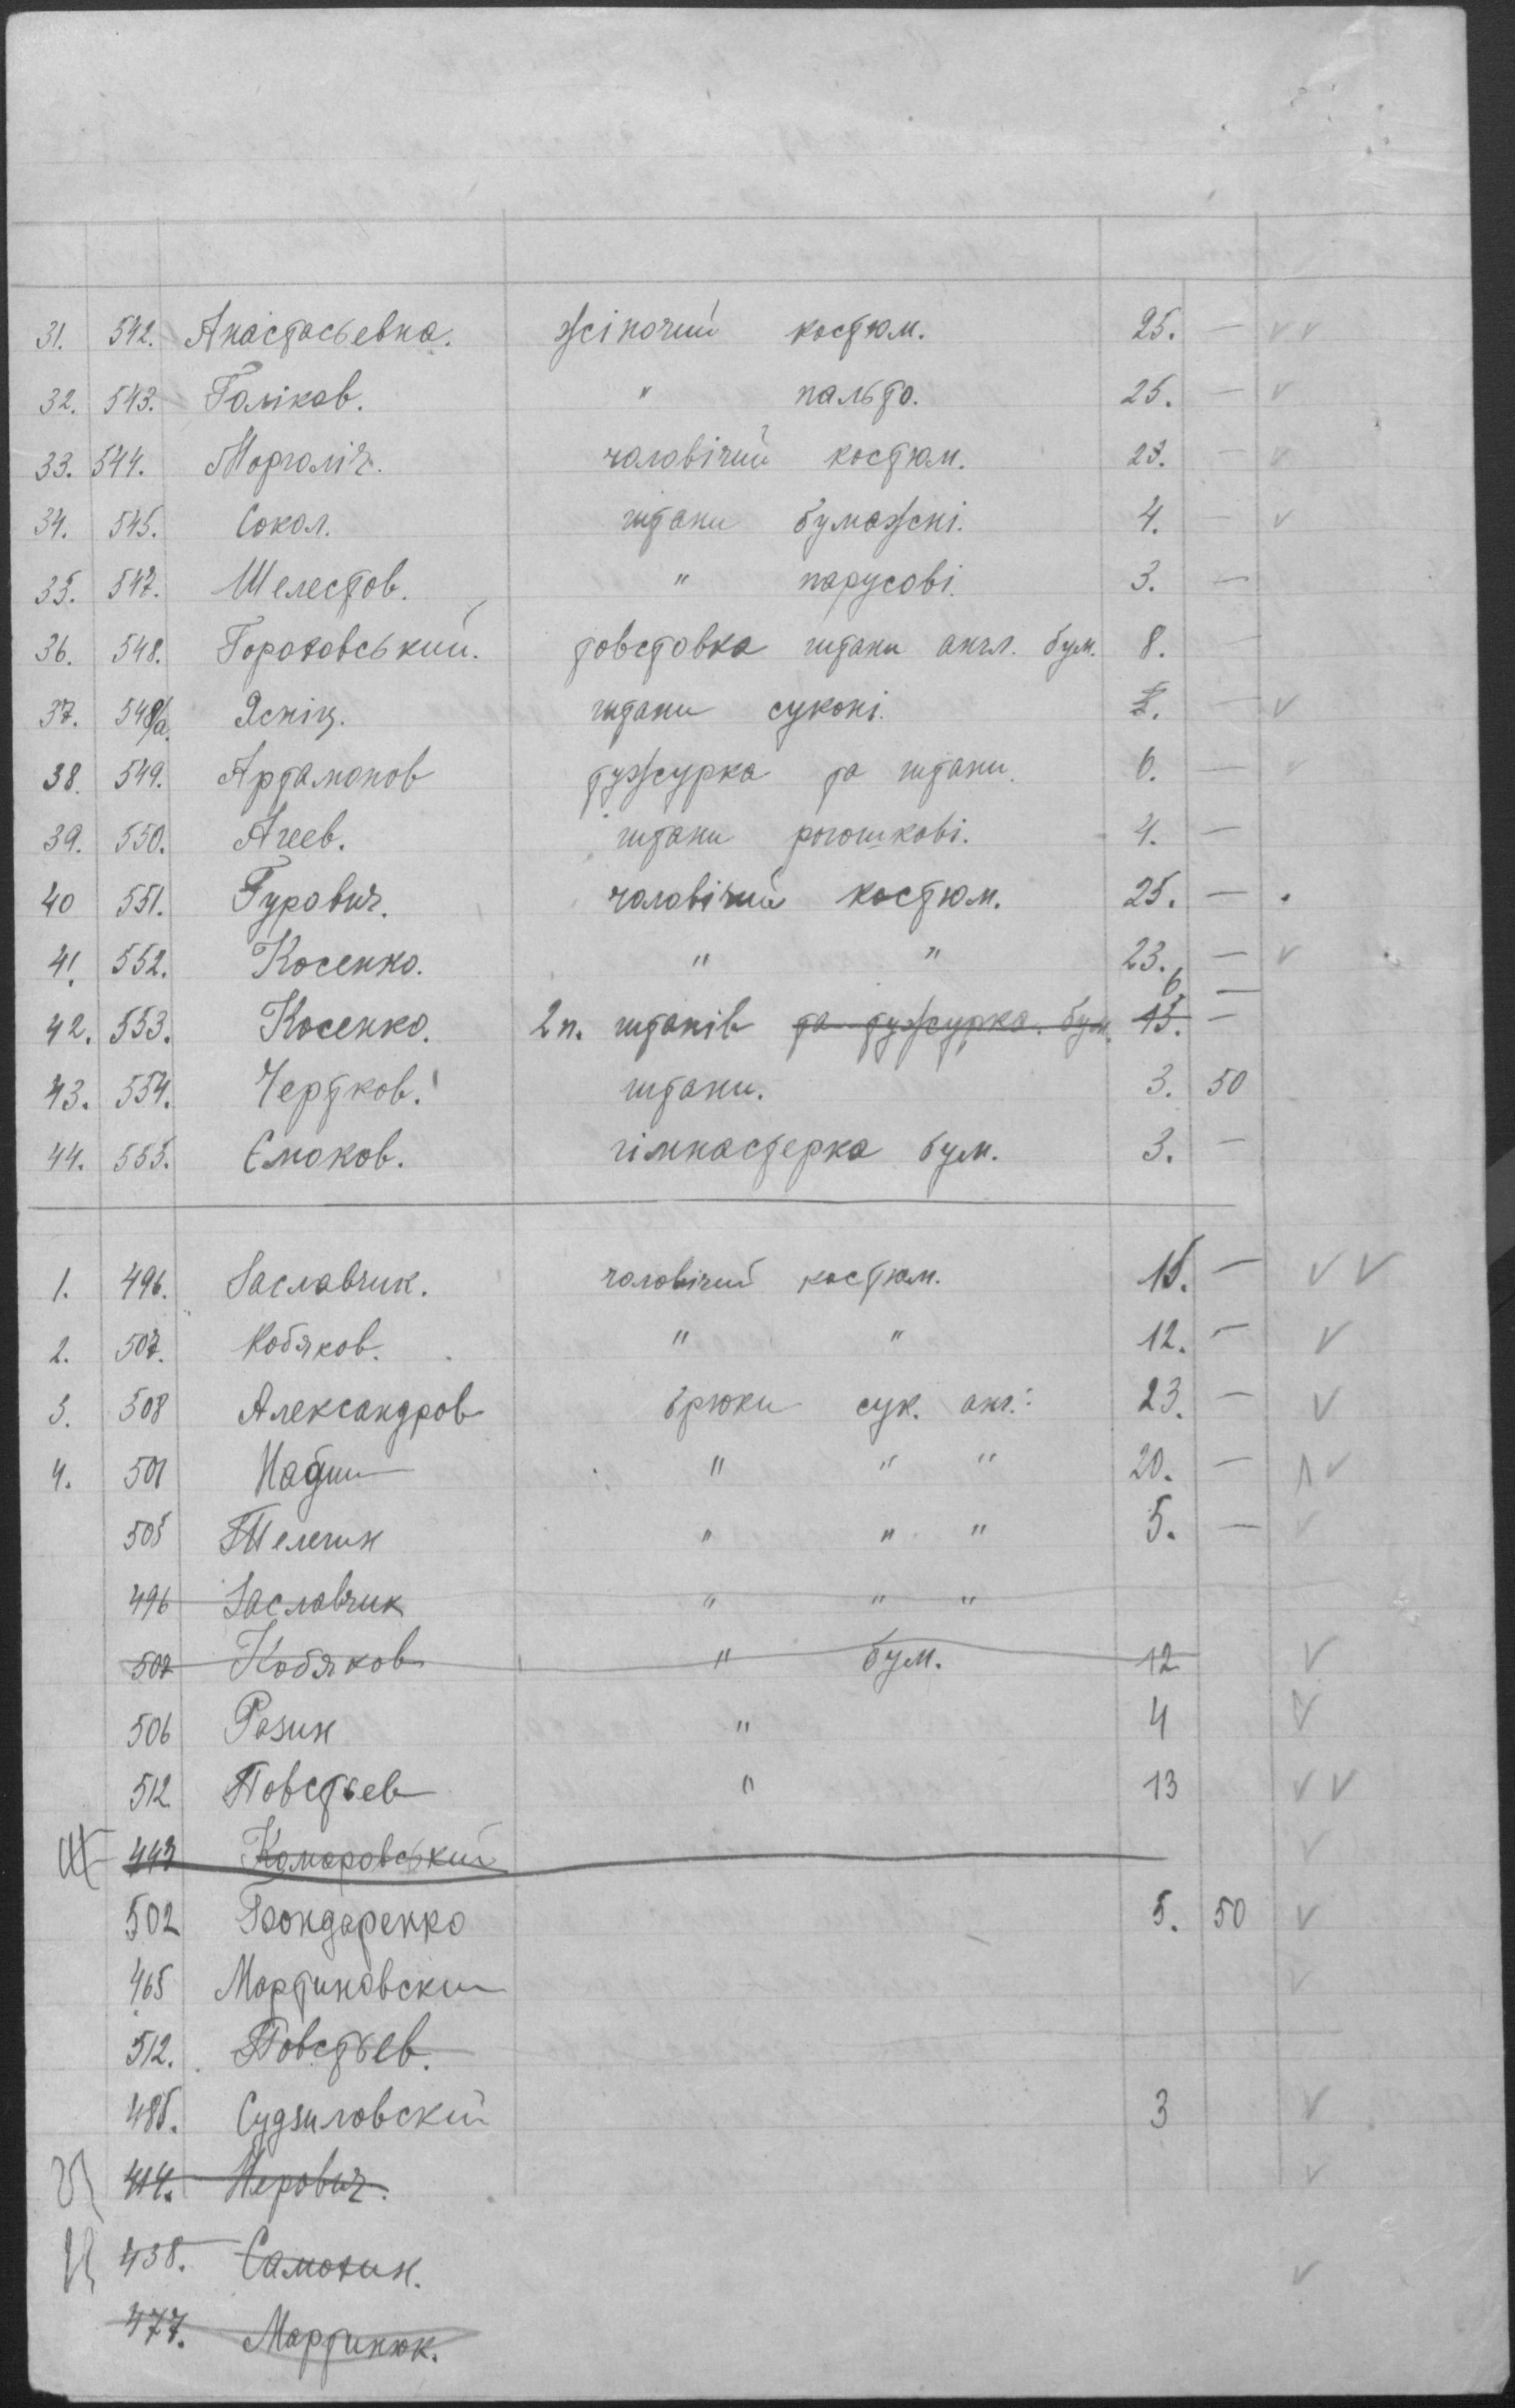 31. 542. Анастасьевна. жіночий костюм. 25. — v v
32. 543. Галіков. " пальто. 25. — v
33. 544. Моргаліч. чоловічий костюм. 23. — v
34. 545. Сокол. штани бумажні. 4. — v
35. 547. Шелестов. " парусові. 3. —
36. 548. Гороховський. товстовка штани англ. бум. 8. —
37. 548/а. Ясніц. штани суконі. — v
38. 549. Артамонов тужурка та штани. 6. — v
39. 550. Агеев. штани рогошкові. 4. —
40 551. Гурович. чоловічий костюм. 25. —
41. 552. Косенко. " " 23. — v
6. —
42. 553. Косенко. 2 п. штанів та тужурка. бум. 15. —
43. 554. Чертков. штани. 3. 50
44. 555. Ємоков. гімнастерка бум. 3. —
1. 496. Заславчик. чоловічий костюм. 15. — v v
2. 507. Кобяков. " " 12. — v
3. 508 Александров брюки сук. анг. 23. — v
4. 501 " " " 20. — v
505 Телегин " " " 5. — v
496 Заславчик " " "
507 Кобяков " бум. 12 v
506 Разин " 4 v
512 Повстьев " 13 v v
443 Комаровський v
502 Бондаренко 5. 50 v
465 Мартиновски v
512. Повстьев.
485. Судзиловский 3 v
414. v
438. Самохин. v
477. Мартинюк.